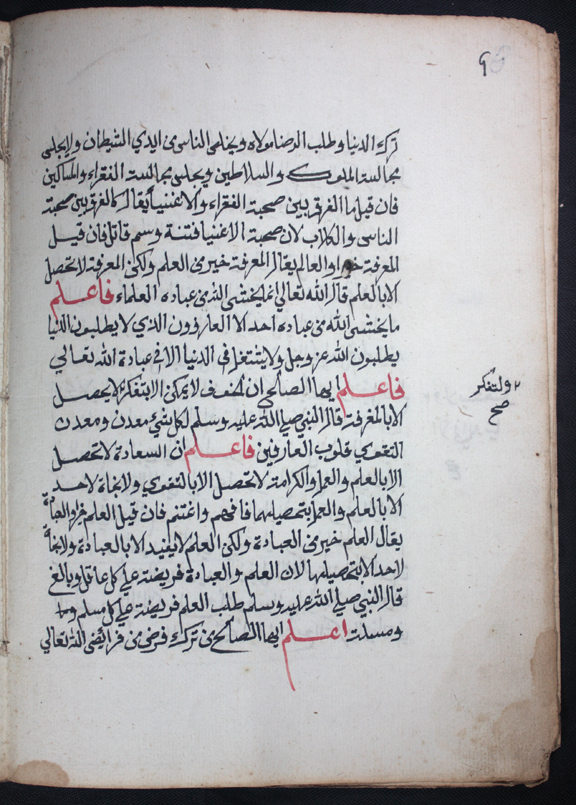 ٩
ترك الدنيا و طلب الرضا مولاه ويخلص الناس من ايدي الشيطان ولا يجلس
بجالسة الملوك والسلاطين ويجلس بجالسة الفقراء والمساكين
فان قيل ما الفرق بين صحبة الفقراء والاغنيا يقال كالفرق بين صحبة
الناس والكلاب لان صحبة الاغنيا فتنة وسم قاتل فان قيل
المعرفة خير او العالم يقال المعرفة خير من العلم ولكن المعرفة لا تحصل
الا بالعلم قال الله تعالي انما يخشى الله من عباده العلماء فاعلم
ما يخشى الله من عباده احد الا العارفون الذي لا يطلبون الدنيا
يطلبون الله عز وجل ولا يشتغل في الدنيا الا في عبادة الله تعالي
فاعلم ايها الصالح ان لا يمكن الا بتفكر لا يحصل
ولتفكر
صح
الا بالمعرفة قال النبي صلي الله عليه وسلم لكل شيء معدن ومعدن
التقوي قلوب العارفين فاعلم ان السعادة لا تحصل
الا بالعلم والعمل والكرامة لا تحصل الا بالتقوي ولا نجاة لاحد
الا بالعلم والعمل بتحصيلهما فافهم واغتنم فان قيل العلم خير او العبادة
يقال العلم خير من العبادة ولكن العلم لا يفيد الا بالعبادة ولا نجاة
لاحد الا بتحصيلها لان العلم والعبادة فريضة علي كل عاقل وبالغ
قال النبي صلي الله عليه وسلم طلب العلم فريضة علي كل مسلم
ومسلمة اعلم ايها الصالح من ترك فرض من فرايض الله تعالي